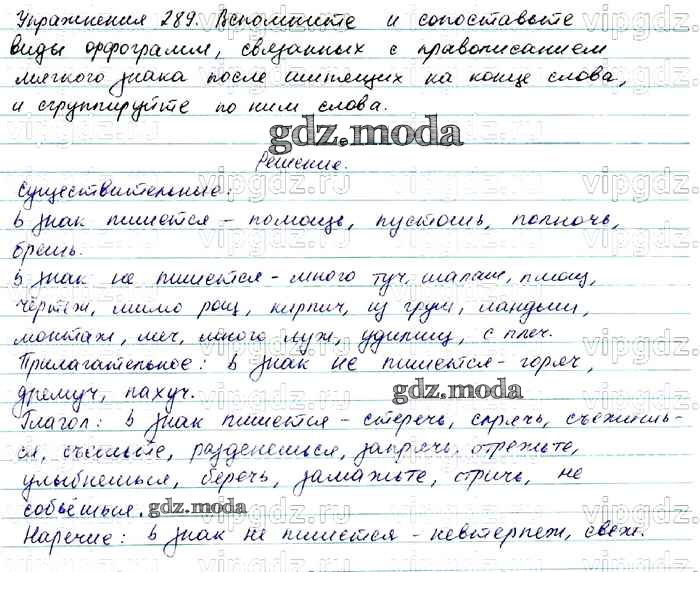 Упражнения 289. Вспомните и сопоставьте
виды орфограмм, связанных с правописанием
мягкого знака после шипящих на конце слова,
и сгруппируйте по ним слова.
gdz.moda
Решение.
Существительные:
ь знак пишется - помощь, пустошь, полночь,
брешь.
ь знак не пишется - много туч, шалаш, плющ,
чертёж, мимо рощ, кирпич, из груш, ландыш,
монтаж, меч, много луж, удилищ, с плеч.
Прилагательное: ь знак не пишется - горяч,
дремуч, пахуч.
gdz.moda
Глагол: ь знак пишется - стеречь, спрячь, съежишь-
ся, съешьте, разденешься, запрячь, отрежьте,
улыбнешься, беречь, замажьте, стричь, не
собьёшься.
gdz.moda
Наречие: ь знак не пишется - невтерпеж, свеж.